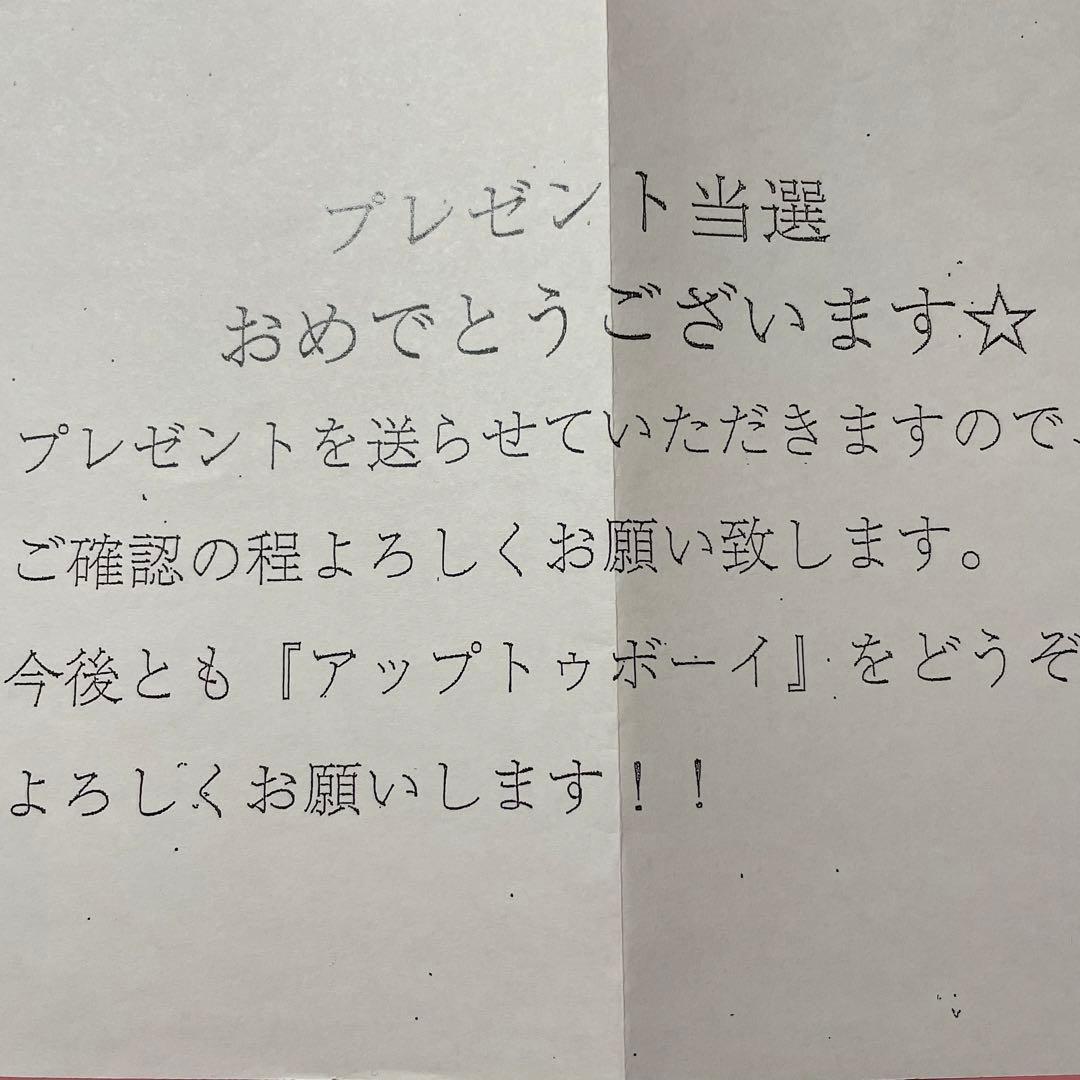 プレゼント当選
おめでとうございます☆
プレゼントを送らせていただきますので、
ご確認の程よろしくお願い致します。
今後とも『アップトゥボーイ』をどうぞ
よろしくお願いします！！